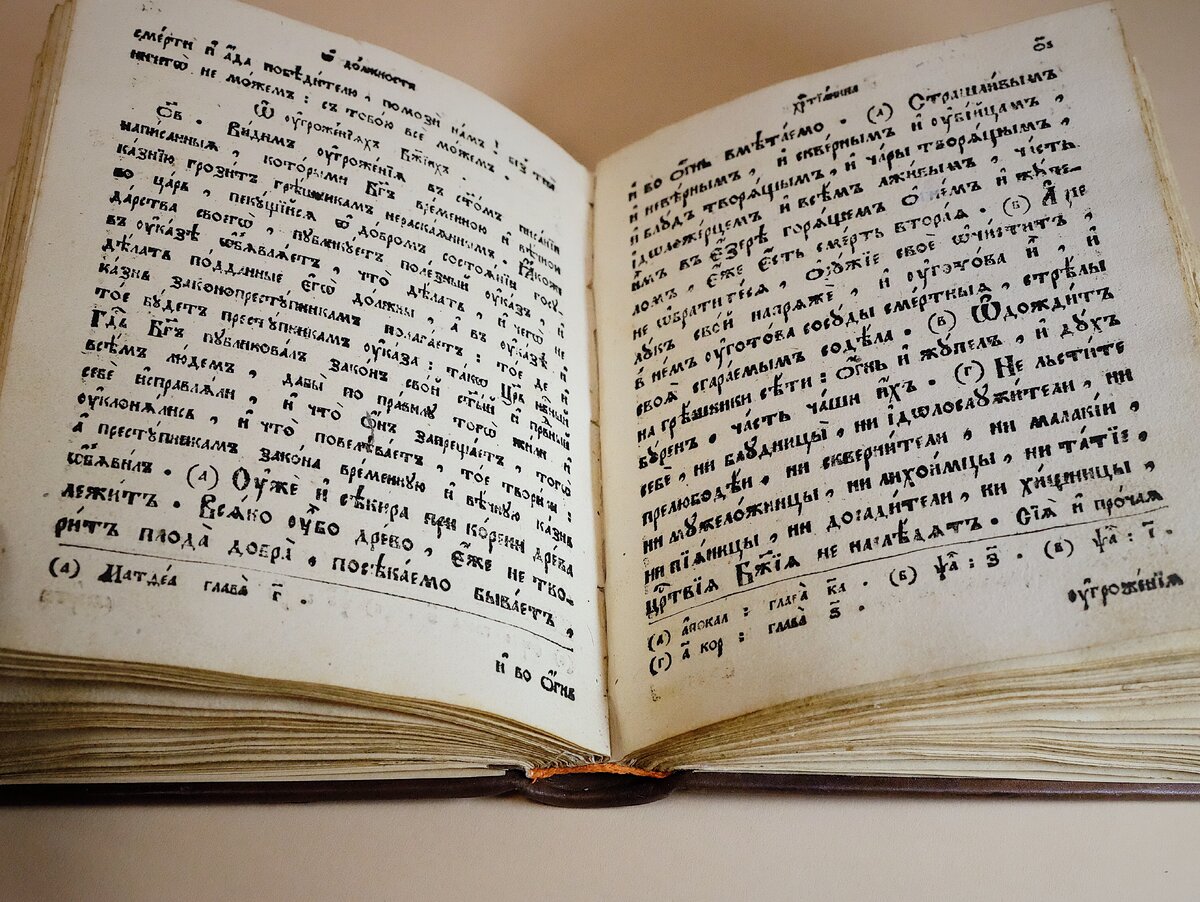 Ѿ до́лжности
сме́рти и҆ а҆́да побѣди́телю, помозѝ на́мъ! без̾ тебѐ
ничегѡ̀ не мо́жемъ: съ тобо́ю всѐ мо́жемъ.
Ѿ оу҆гроже́нїѧхъ бж҃їихъ.
О҃в. Ви́димъ оу҆гроже́нїѧ въ ст҃о́мъ писа́нїи
напи́санныѧ, кото́рыми бг҃ъ вре́менною и҆ вѣ́чною
ка́знїю грози́тъ грѣ́шникамъ нераска́ѧннымъ. Ꙗ҆́коже
бо ца́рь, пекꙋ́щїйсѧ ѡ҆ до́бромъ состоѧ́нїи госꙋ-
да́рства своегѡ̀, пꙋблику́етъ поле́зный оу҆ка́зъ, и҆
въ оу҆ка́зѣ ѡ҆б̾ѧвлѧ́етъ, что̀ дѣ́лать, и҆ чегѡ̀ не
дѣ́лать по́дданные є҆гѡ̀ должны̀, а҆ въ оу҆ка́зѣ и҆
ка́знь законопрестꙋ́пникамъ полага́етъ: то́е де и҆
то́е бꙋ́детъ престꙋ́пникамъ оу҆ка́за: та́кѡ цр҃ь нбⷭ҇ный
гдⷭ҇ь бг҃ъ пꙋбликова́лъ зако́нъ свой ст҃ы́й и҆ првⷣный
всѣ́мъ лю́демъ, дабы̀ по пра́вилꙋ тогѡ̀ жи́ли и҆
себѐ и҆справлѧ́ли, и҆ что̀ о҆́нъ запреща́етъ, тогѡ̀
оу҆клонѧ́лись, и҆ что̀ повелѣва́етъ, то́е твори́ли:
а҆ престꙋ́пникамъ зако́на вре́меннꙋю и҆ вѣ́чнꙋю ка́знь
ѡ҆б̾ѧви́лъ. (а) Оу҆жѐ и҆ сѣки́ра при ко́рени дре́ва
лежи́тъ. Всѧ́ко оу҆́бо дре́во, є҆́же не тво-
ри́тъ плода̀ добра̀, посѣка́емо быва́етъ,
(а) Матѳе́а глава̀ г҃.
и҆ во о҆́гнь
хрⷭ҇тїани́на
о҃з
и҆ во о҆́гнь вмѣта́емо. (а) Страшли́вымъ
и҆ невѣ̑рнымъ, и҆ скве́рнымъ и҆ оу҆бі́йцамъ,
и҆ блꙋ́дъ творѧ́щымъ, и҆ ча́ры творѧ́щымъ,
і҆дѡложе́рцемъ и҆ всѣ̑мъ лжи̑вымъ, ча́сть
и҆̀мъ въ є҆́зерѣ горѧ́щемъ о҆гне́мъ и҆ жꙋ́пе-
ломъ, є҆́же є҆́сть сме́рть втора́ѧ. (б) А҆́ще не
ѡ҆брати́тесѧ, о҆рꙋ́жїе своѐ ѡ҆чи́ститъ,
лꙋ́къ сво́й напрѧжѐ, и҆ оу҆гото́ва и҆̀, и҆
в̾ не́мъ оу҆гото́ва сосꙋ́ды сме́ртныѧ, стрѣ́лы
своѧ̑ сгара́емымъ содѣ́ла. (в) Ѡ҆дожди́тъ
на грѣ́шники сѣ̑ти: о҆́гнь и҆ жꙋ́пелъ, и҆ дꙋ́хъ
бꙋ́ренъ, ча́сть ча́ши и҆́хъ. (г) Не льсти́те
себѐ, ни блꙋдницы̀, ни і҆дѡлослꙋжи́тели, ни
прелюбодѣ̑и, ни скверни́тели, ни мала́кїи,
ни мꙋжело́жницы, ни лихои́мцы, ни та́тїе,
ни пїѧ́ницы, ни досади́тели, ни хи́щницы,
црⷭ҇твїѧ бж҃їѧ не наслѣ́дѧтъ. Сїѧ̑ и҆ прѡ́чаѧ
(а) а҆пока́л: глава̀ к҃а. (б) ѱа: з҃. (в) ѱа: і҃.
(г) а҃ кор: глава̀ ѕ҃.
оу҆гроже́нїѧ